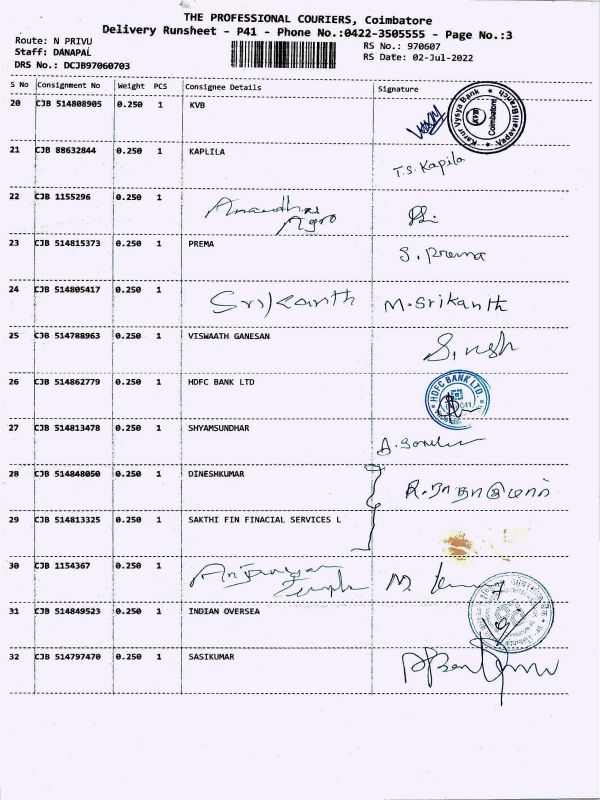 THE PROFESSIONAL COURIERS, Coimbatore
Delivery Runsheet - P41 - Phone No.:0422-3505555 - Page No.:3
Route: N PRIVU RS No.: 970607
Staff: DANAPAL RS Date: 02-Jul-2022
DRS No.: DCJB97060703
S No Consignment No Weight PCS Consignee Details Signature
20 CJB 514808905 0.250 1 KVB Karur Vysya Bank Coimbatore KVB
21 CJB 88632844 0.250 1 KAPLILA T.S. Kapila
22 CJB 1155296 0.250 1 Anandhas Agro
23 CJB 514815373 0.250 1 PREMA S. Prema
24 CJB 514805417 0.250 1 Srikanth M. Srikanth
25 CJB 514788963 0.250 1 VISWAATH GANESAN
26 CJB 514862779 0.250 1 HDFC BANK LTD HDFC BANK LTD.
27 CJB 514813478 0.250 1 SHYAMSUNDHAR
28 CJB 514848050 0.250 1 DINESHKUMAR
29 CJB 514813325 0.250 1 SAKTHI FIN FINACIAL SERVICES L
30 CJB 1154367 0.250 1 Temple
31 CJB 514849523 0.250 1 INDIAN OVERSEA
32 CJB 514797470 0.250 1 SASIKUMAR